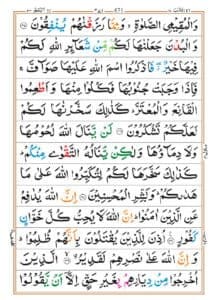 وَالْمُقِيْمِى الصَّلٰوةِ ۙ وَمِمَّا رَزَقْنٰهُمْ يُنْفِقُوْنَ
وَالْبُدْنَ جَعَلْنٰهَا لَكُمْ مِّنْ شَعَآئِرِ اللّٰهِ لَكُمْ
فِيْهَا خَيْرٌ ۖ فَاذْكُرُوا اسْمَ اللّٰهِ عَلَيْهَا صَوَآفَّ ۚ
فَاِذَا وَجَبَتْ جُنُوْبُهَا فَكُلُوْا مِنْهَا وَاَطْعِمُوا
الْقَانِعَ وَالْمُعْتَرَّ ؕ كَذٰلِكَ سَخَّرْنٰهَا لَكُمْ
لَعَلَّكُمْ تَشْكُرُوْنَ لَنْ يَّنَالَ اللّٰهَ لُحُوْمُهَا
وَلَا دِمَآؤُهَا وَلٰكِنْ يَّنَالُهُ التَّقْوٰى مِنْكُمْ ؕ
كَذٰلِكَ سَخَّرَهَا لَكُمْ لِتُكَبِّرُوا اللّٰهَ عَلٰى مَا
هَدٰىكُمْ ؕ وَبَشِّرِ الْمُحْسِنِيْنَ اِنَّ اللّٰهَ يُدٰفِعُ
عَنِ الَّذِيْنَ اٰمَنُوْا ؕ اِنَّ اللّٰهَ لَا يُحِبُّ كُلَّ خَوَّانٍ
كَفُوْرٍ اُذِنَ لِلَّذِيْنَ يُقٰتَلُوْنَ بِاَنَّهُمْ ظُلِمُوْا ؕ
وَاِنَّ اللّٰهَ عَلٰى نَصْرِهِمْ لَقَدِيْرُ الَّذِيْنَ
اُخْرِجُوْا مِنْ دِيَارِهِمْ بِغَيْرِ حَقٍّ اِلَّاۤ اَنْ يَّقُوْلُوْا